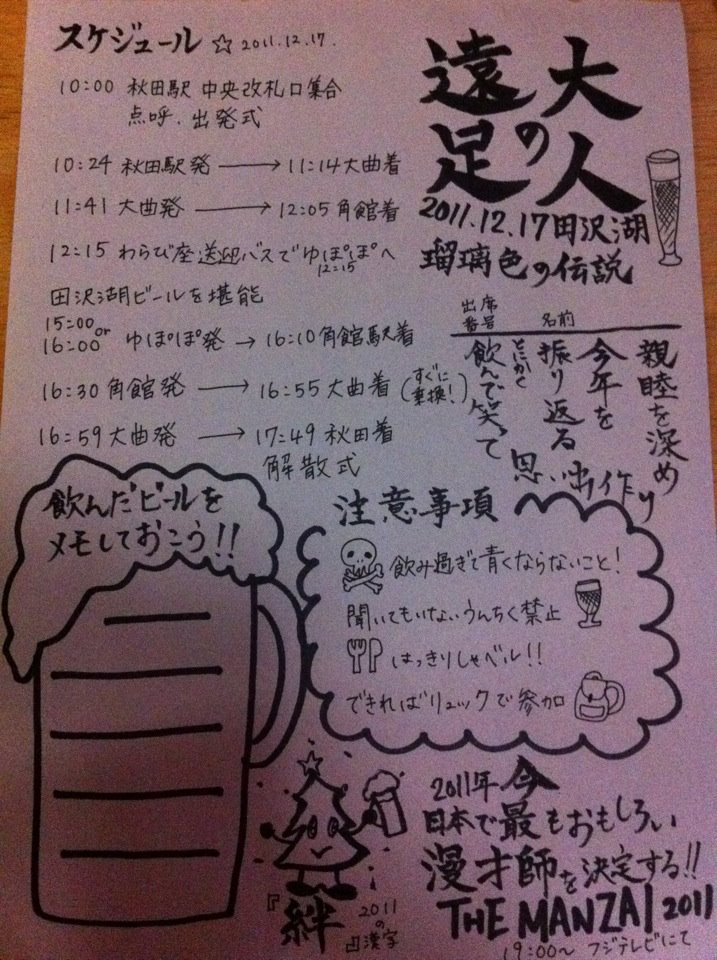 大人の遠足
2011.12.17田沢湖
瑠璃色の伝説
出席番号
名前
親睦を深め
今年を
振り返る
とにかく
飲んで笑って
思い出作り
スケジュール ☆ 2011.12.17.
10:00 秋田駅 中央改札口集合
点呼、出発式
10:24 秋田駅発 → 11:14大曲着
11:41 大曲発 → 12:05角館着
12:15 わらび座送迎バスでゆぽぽへ
12:15
田沢湖ビールを堪能
15:00 or
16:00 ゆぽぽ発 → 16:10角館駅着
16:30 角館発 → 16:55大曲着 (すぐに乗換!)
16:59 大曲発 → 17:49 秋田着
解散式
飲んだビールを
メモしておこう!!
注意事項
飲み過ぎて青くならないこと!
聞いてもいないうんちく禁止
はっきりしゃベル!!
できればリュックで参加
『絆』
2011の漢字
2011年 今
日本で最もおもしろい
漫才師を決定する!!
THE MANZAI 2011
19:00〜 フジテレビにて